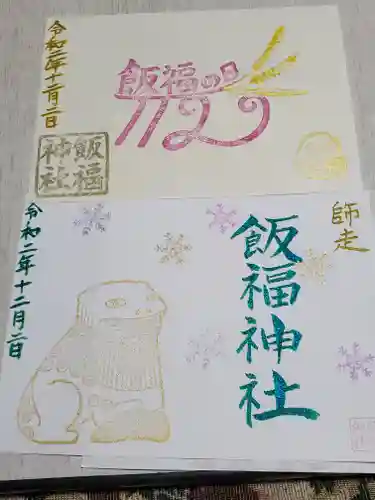 令和二年十一月二日
飯福の日
1129
飯福
神社
師走
飯福神社
令和二年十二月二日